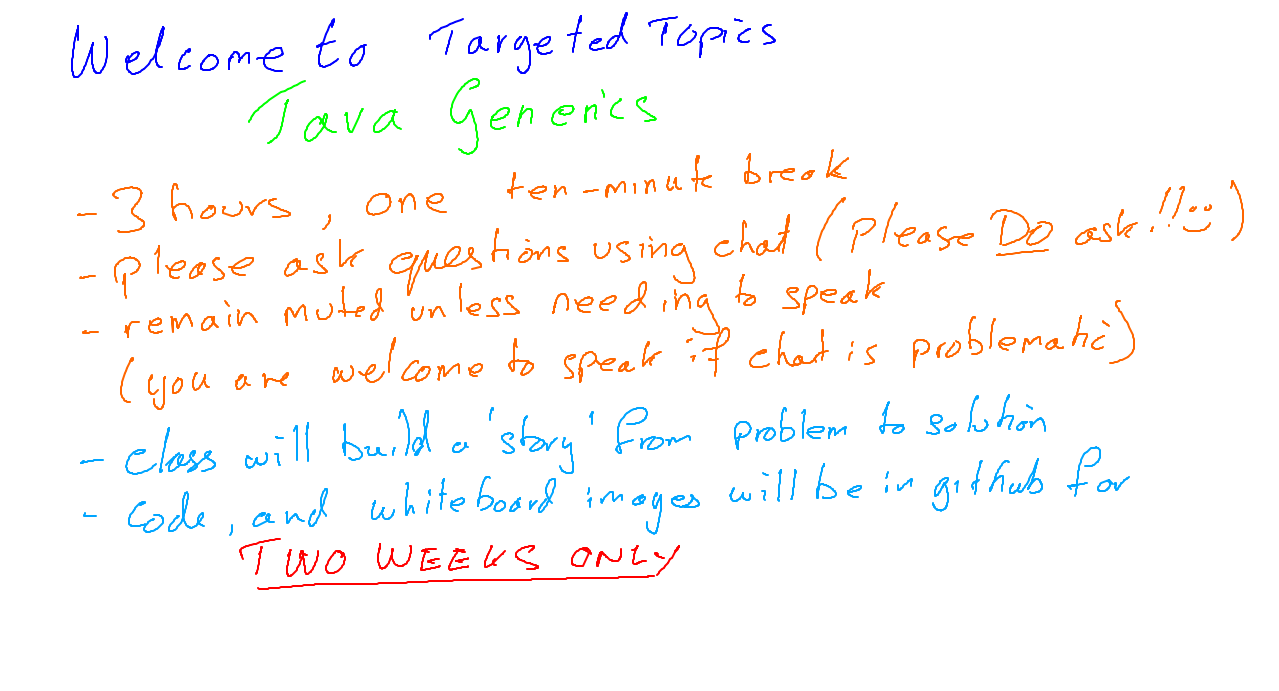 Welcome to Targeted Topics
Java Generics
- 3 hours, one ten-minute break
- please ask questions using chat (Please DO ask!!☺)
- remain muted unless needing to speak
(you are welcome to speak if chat is problematic)
- class will build a 'story' from problem to solution
- code, and whiteboard images will be in github for
TWO WEEKS ONLY